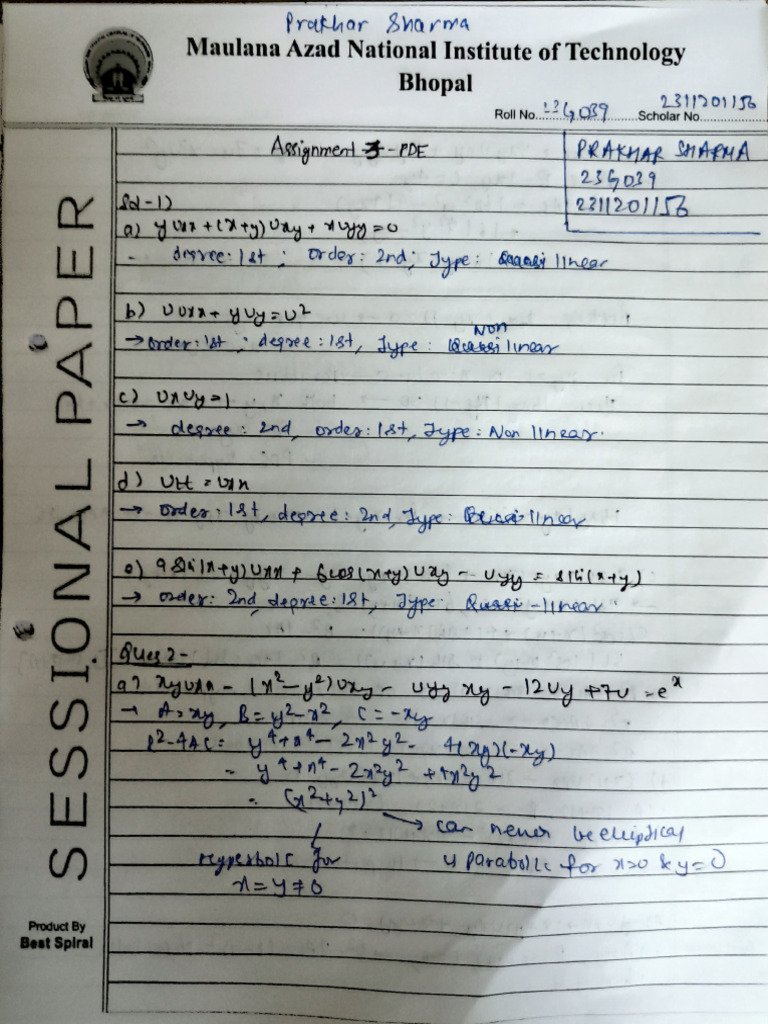 Prakhar Sharma
Maulana Azad National Institute of Technology
Bhopal
Roll No. 23G039 Scholar No. 2311201156
Assignment 3 - PDE
PRAKHAR SHARMA
23G039
2311201156
SESSIONAL PAPER
Sol-1)
a) yuxx + (x+y)uxy + xuyy = 0
- degree: 1st ; Order: 2nd; Type: linear
b) uuxx + yuy = u²
Non
→ order: 1st ; degree: 1st, Type: linear
c) uxuy = 1
→ degree: 2nd, order: 1st, Type: Non linear.
d) utt = uxx
→ order: 1st, degree: 2nd, Type: linear
e) 9 sin(x+y)uxx + 6cos(x+y)uxy - uyy = sin(x+y)
→ order: 2nd, degree: 1st, Type: Quasi-linear
Ques 2-
a) xyuxx - (x²-y²)uxy - uyy xy - 12uy + 7u = eˣ
→ A = xy, B = y²-x², C = -xy
B²-4AC = y⁴+x⁴-2x²y² - 4(xy)(-xy)
= y⁴+x⁴-2x²y²+4x²y²
= (x²+y²)²
→ can never be elliptical
Hyperbolic for
x = y ≠ 0
parabolic for x=0 & y=0
Product By
Best Spiral